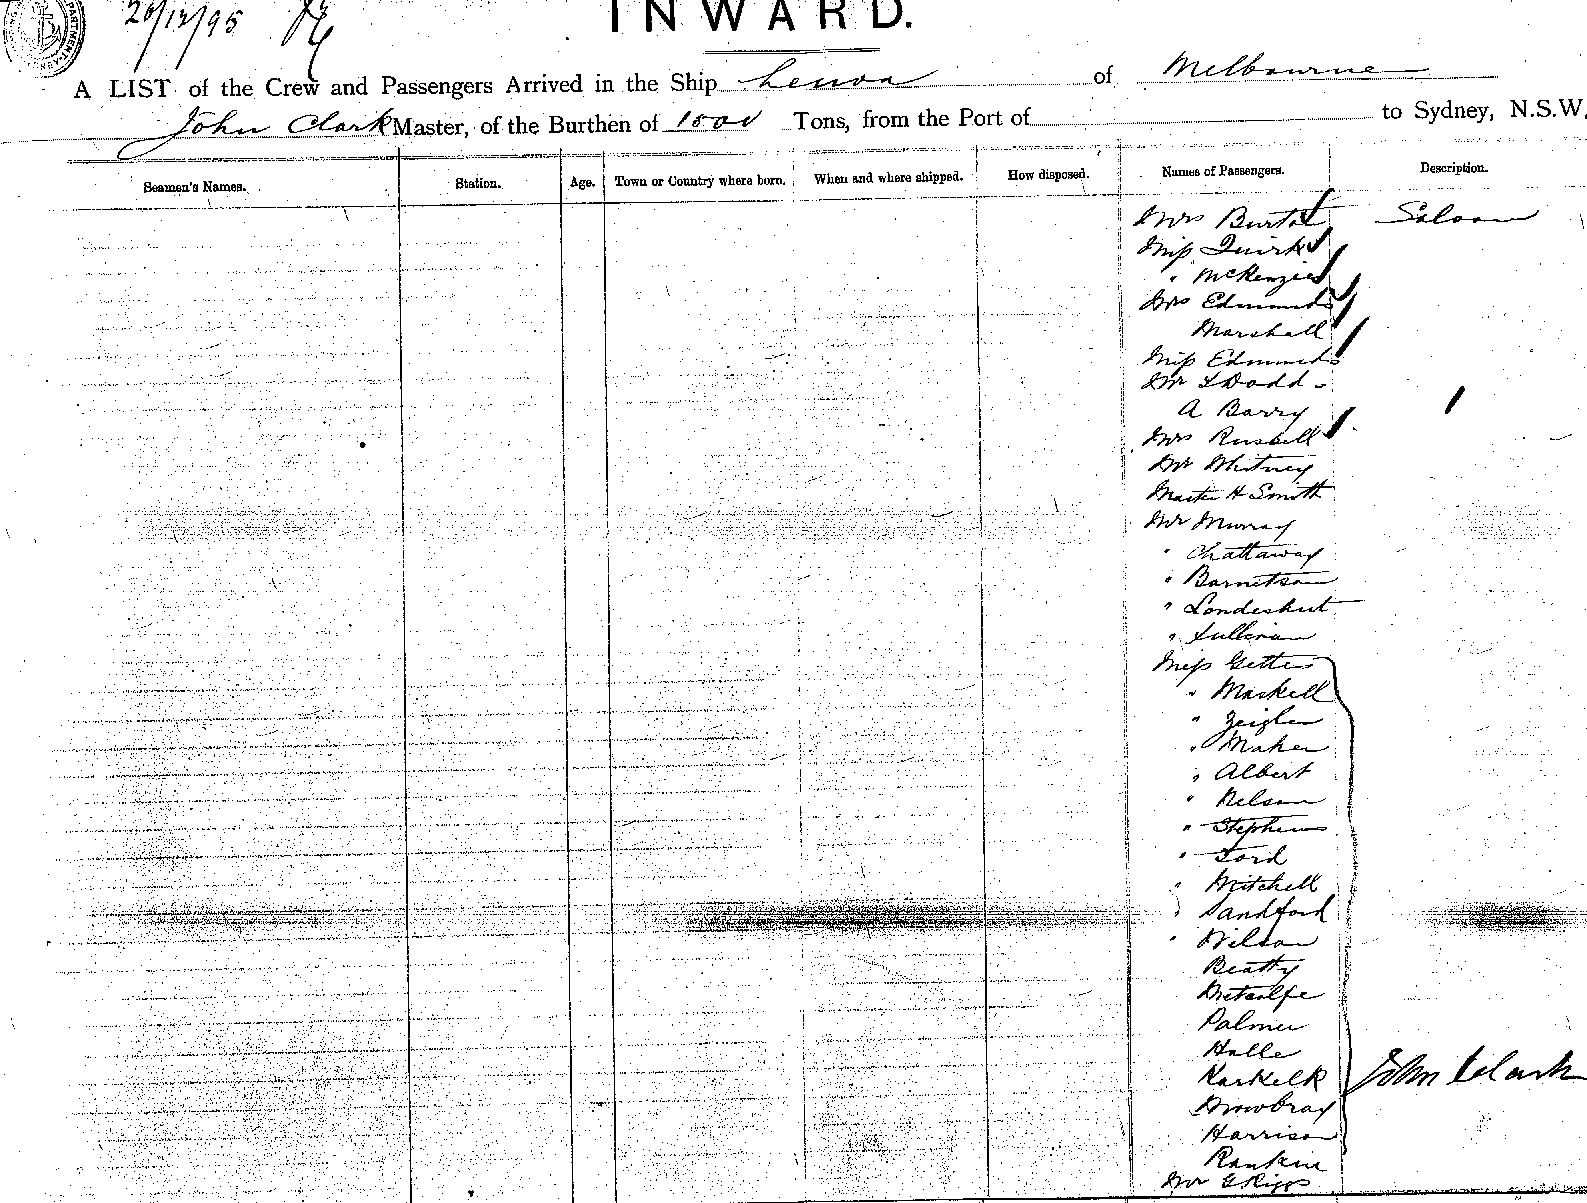 20/12/95
INWARD.
A LIST of the Crew and Passengers Arrived in the Ship of Melbourne
John Clark Master, of the Burthen of Tons, from the Port of to Sydney, N.S.W.
Seamen's Names. Station. Age. Town or Country where born. When and where shipped. How disposed. Names of Passengers. Description.
Mrs Burton Saloon
Miss Quirk
" McKenzie
Mrs Edmunds
Marshall
Miss Edmunds
Mr Dodd
A Barry
Mrs Russell
Mr Whitney
Master H Smith
Mr Murray
" Chattaway
" Barnetson
" Londeshut
" Sullivan
Miss
" Maskell
" Zeigler
" Maher
" Albert
" Nelson
" Stephens
" Ford
" Mitchell
" Sandford
" Wilson
Beatty
Metcalfe
Palmer
Halle
John Clark
Mowbray
Harrison
Rankin
Mr G Riggs